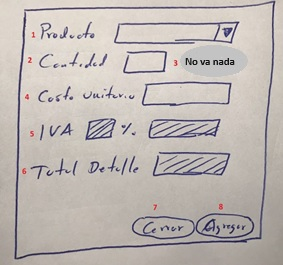 1 Producto
2 Cantidad 3 No va nada
4 Costo Unitario
5 IVA %
6 Total Detalle
7 8
Cerrar Agregar